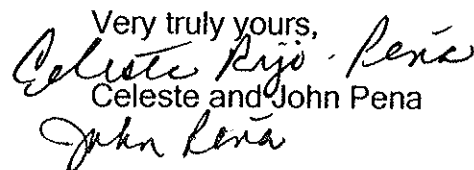 Very truly yours,
Celeste Rijo-Peña
Celeste and John Pena
John Peña